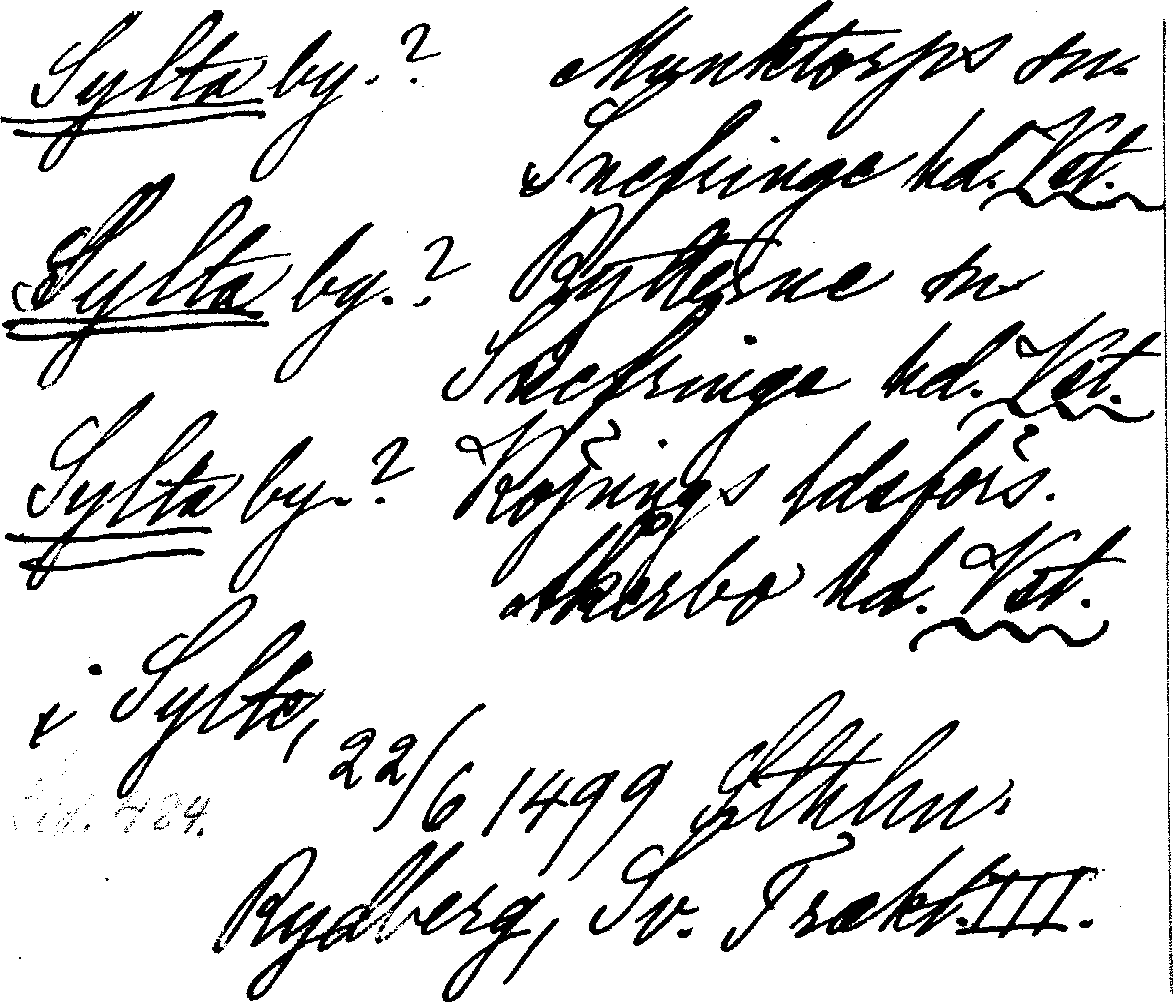 Sylta by.? Munktorps sn.
Snefringe hd. Vst.
Sylta by.? Rytterne sn
Snefringe hd. Vst.
Sylta by.? Köpings ldsförs.
Åkerbo hd. Vst.
i Sylte, 22/6 1499 Sthlm.
484.
Rydberg, Sv. Trakt. III.